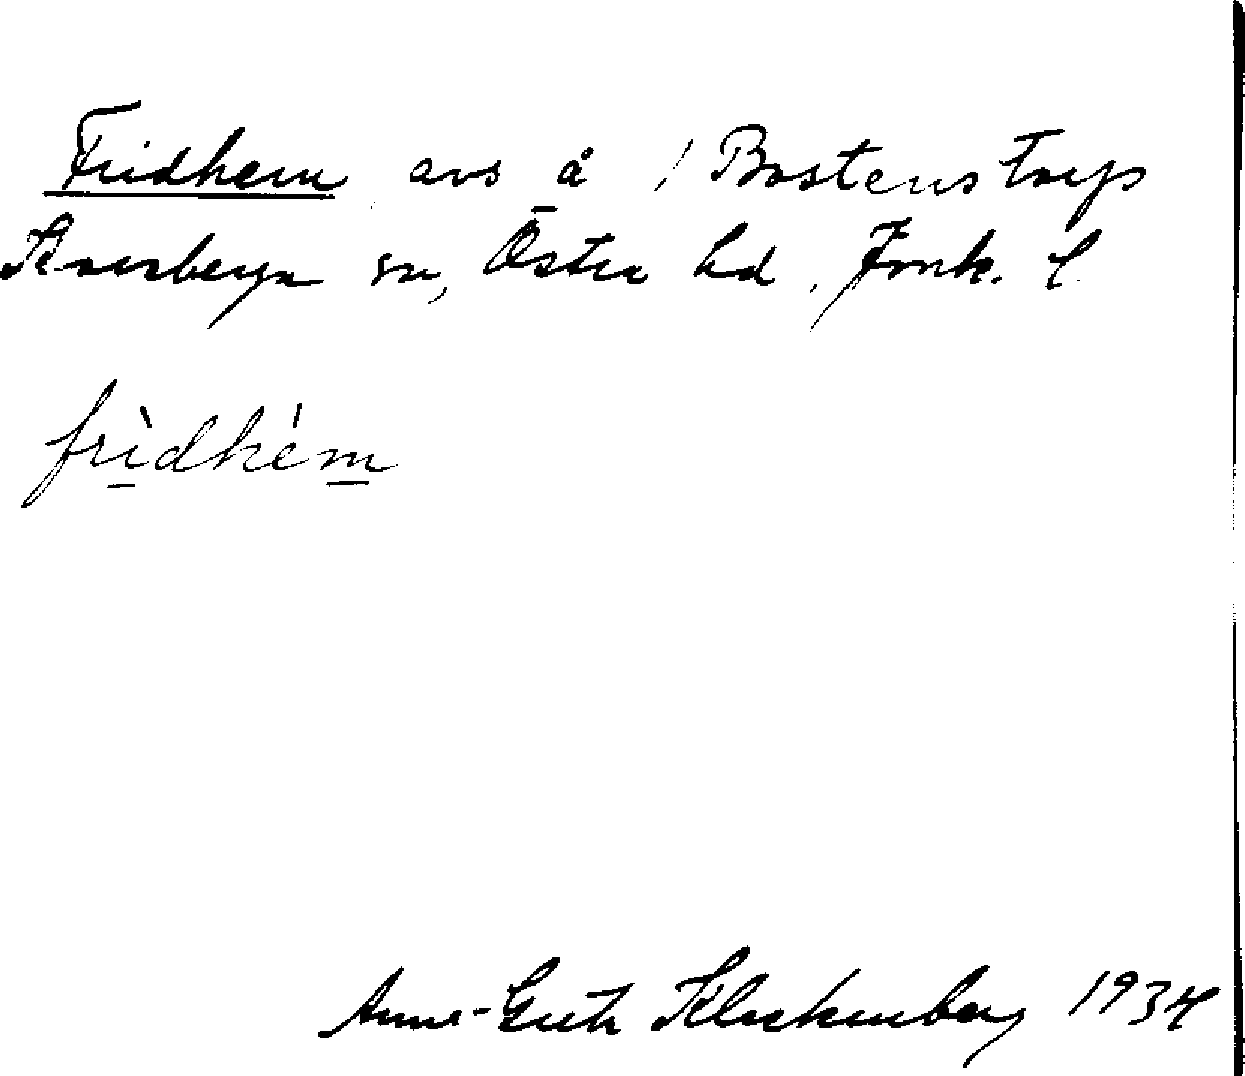 Fridhem avs å / Bostenstorp
Skarsberga sn, Östra hd, Jönk. l.
fri̠dhem̠
Anne-Greth Klockenberg 1934